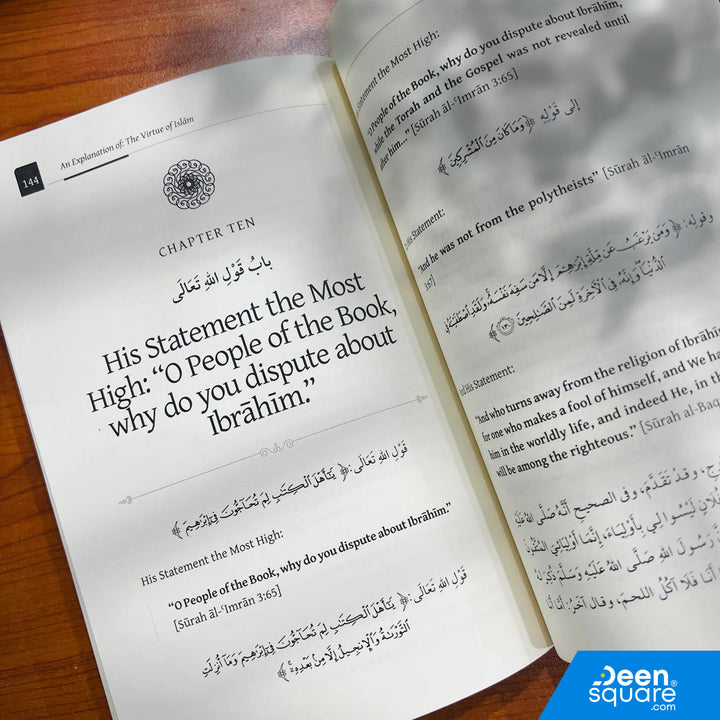 144
An Explanation of: The Virtue of Islām
CHAPTER TEN
بابُ قَوْلِ اللهِ تَعَالَى
His Statement the Most
High: “O People of the Book,
why do you dispute about
Ibrāhīm.”
قَوْلِ اللهِ تَعَالَى: ﴿ يَٰٓأَهْلَ ٱلْكِتَٰبِ لِمَ تُحَآجُّونَ فِىٓ إِبْرَٰهِيمَ ﴾
His Statement the Most High:
“O People of the Book, why do you dispute about Ibrāhīm.”
[Sūrah āl-ʿImrān 3:65]
قَوْلِ اللهِ تَعَالَى: ﴿ يَٰٓأَهْلَ ٱلْكِتَٰبِ لِمَ تُحَآجُّونَ فِىٓ إِبْرَٰهِيمَ وَمَآ أُنزِلَتِ
ٱلتَّوْرَىٰةُ وَٱلْإِنجِيلُ إِلَّا مِنۢ بَعْدِهِۦٓ ﴾
Statement the Most High:
“O People of the Book, why do you dispute about Ibrāhīm,
while the Torah and the Gospel was not revealed until
after him...” [Sūrah āl-ʿImrān 3:65]
إلى قَوْلِهِ ﴿ وَمَا كَانَ مِنَ ٱلْمُشْرِكِينَ ﴾
His Statement:
“And he was not from the polytheists” [Sūrah āl-ʿImrān
وقوله: ﴿ وَمَن يَرْغَبُ عَن مِّلَّةِ إِبْرَٰهِـۧمَ إِلَّا مَن سَفِهَ نَفْسَهُۥ وَلَقَدِ ٱصْطَفَيْنَٰهُ فِى
ٱلدُّنْيَا وَإِنَّهُۥ فِى ٱلْـَٔاخِرَةِ لَمِنَ ٱلصَّٰلِحِينَ ١٣٠ ﴾
And His Statement:
“And who turns away from the religion of Ibrāhī
for one who makes a fool of himself, and We ha
him in the worldly life, and indeed He, in th
will be among the righteous.” [Sūrah al-Baq
وقدْ تقدَّمَ، وفي الصحيحِ أنَّهُ صَلَّى اللهُ عَلَيْهِ
لَيْسُوا لِي بِأَوْلِيَاءَ، إِنَّمَا أَوْلِيَائِيَ المُتَّقُونَ
رَسولَ اللهِ صَلَّى اللهُ عَلَيْهِ وَسَلَّمَ ذُكِرَ لَهُ
أَنَا فَلا آكُلُ اللحمَ، وقال آخَرُ: أَمَّا أَنَا
Deen
square®
.com